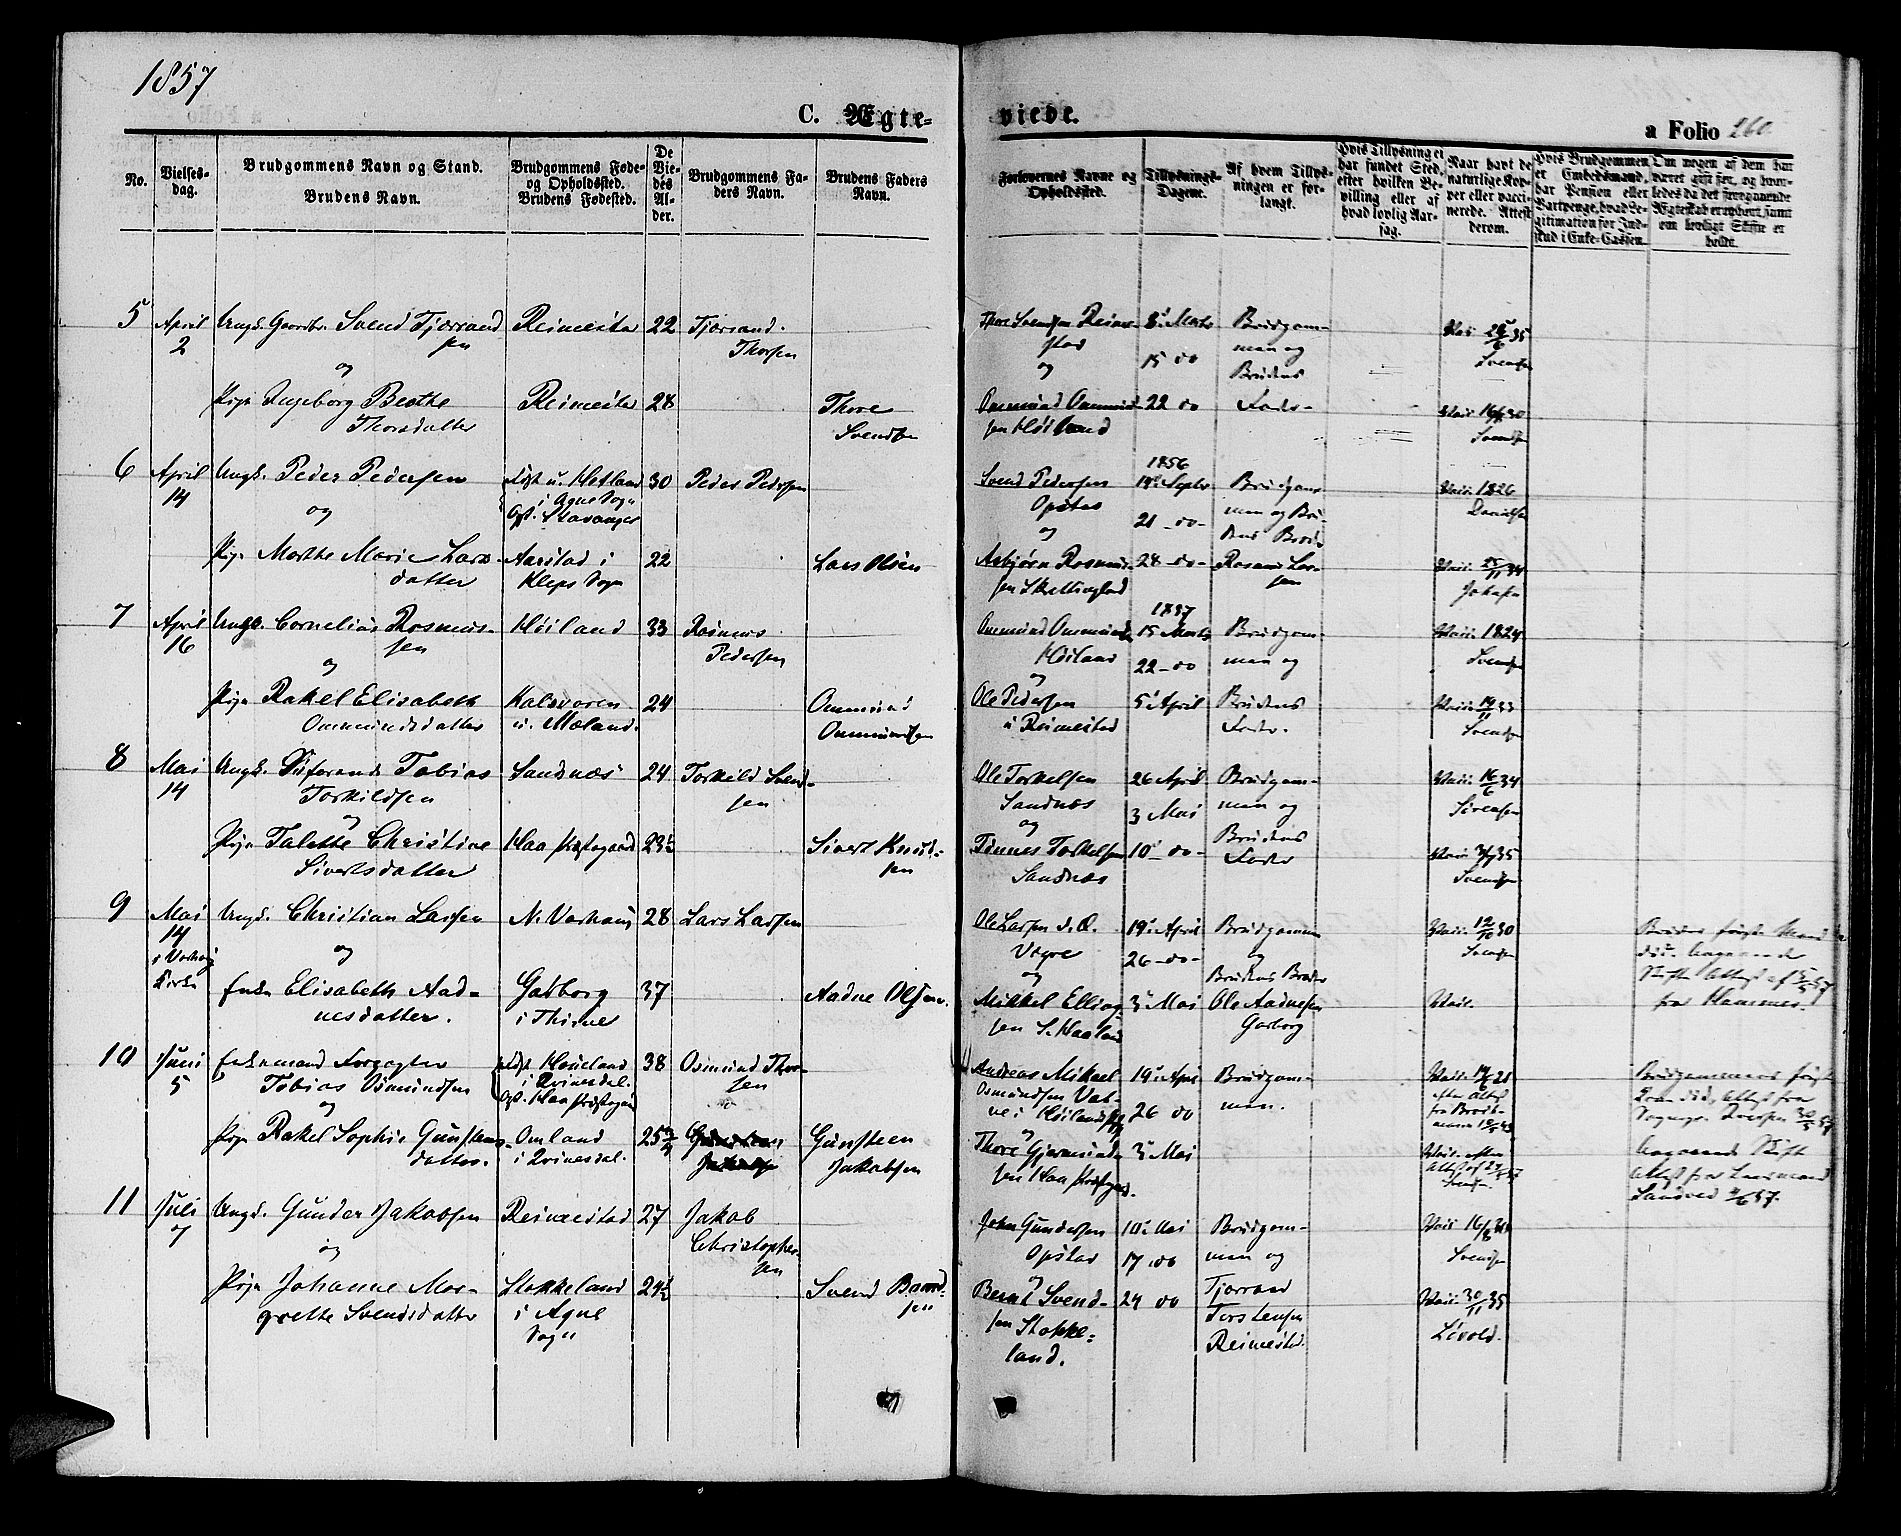 1857
C. Ægte-
viede.
a Folio 260
No.
Vielses-
dag.
Brudgommens Navn og Stand.
Brudens Navn.
Brudgommens Føde-
og Opholdssted.
Brudens Fødested.
De
Vie-
des
Al-
der.
Brudgommens Fa-
ders Navn.
Brudens Faders
Navn.
Forlovernes Navne og
Opholdssted.
Tillysnings-
Dagene.
Af hvem Tillys-
ningen er for-
langt.
Hvis Tillysning ei
har fundet Sted,
efter hvilken Be-
villing eller af
hvad lovlig Aar-
sag.
Naar havt de
naturlige Kop-
per eller vacci-
nerede. Attest
derom.
Hvis Brudgommen
er Embedsmand,
har Pension eller
Vartpenge, hvad Le-
gitimation for Ind-
skud i Enke-Cassen.
Om nogen af dem har
været gift før, og hvor-
ledes da det foregaaende
Ægteskab er ophevet samt
om lovligt Skifte er
holdt.
5
April
2
Ungk. Gaardbr. Svend Tjørrand
sen
og
Pige Ingeborg Berthe
Thorsdatter
Reimestad
Reimestad
22
28
Tjørrand
Thorsen
Thore
Svendsen
Thore Svendsen Reime-
stad
og
Ommund Ommund-
sen Høiland
8' Marts
15 do
22 do
Brudgom-
men og
Brudens
Fader
Vacc.
Svendsen
Vacc.
Svendsen
6
April
14
Ungk. Peder Pedersen
og
Pige Marthe Marie Lars-
datter
født u. Hetland
i Ogne Sogn
Opt. Stavanger
Aarstad i
Kleps Sogn
30
22
Peder Pedersen
Lars Olsen
Svend Pedersen
Opstad
og
Asbjørn Rasmus-
sen Skrettingland
1856
14' Septbr
21 - do -
28 - do -
Brudgom-
men og Bru-
dens Broder
Rasmus Lar-
sen
Vacc. 1826
Davidsen
Vacc. 25/11 34
7
April
16
Ungk. Cornelius Rasmus-
sen
og
Pige Rakel Elisabeth
Ommundsdatter
Høiland
Kalsvoren
u. Mæland.
33
24
Rasmus
Pedersen
Ommund
Ommundsen
Ommund Ommunds.
Høiland
og
Ole Pedersen
u Reimestad
1857
15 Marts
22 - do
5' April
Brudgom-
men og
Brudens
Fader.
Vacc. 1824
Svendsen
Vacc. 19/11 33
Svendsen
8
Mai
14
Tobias
Torkildsen
og
Pige Talette Christine
Sivertsdatter
Sandnæs
Haa Præstegaard
24
23½
Torkild Svend-
sen
Sivert Knud-
sen
Ole Torkelsen
Sandnæs
og
Tønnes Torkelsen
Sandnæs
26 April
3 Mai
10' - do -
Brudgom-
men og
Brudens
Fader
Vacc. 16/6 34
Vacc.
Svendsen
9
Mai
14
i Varhaug
Kirke
Ungk. Christian Larsen
og
Enke Elisabeth Aad-
nesdatter.
N. Varhaug
Garborg
i Thime
28
37
Lars Larsen
Aadne Olsen.
Ole Larsen
Vigre
og
Mikkel Elling-
sen S. Haaland
19' April
26 - do -
3' Mai
Brudgommen
og
Brudens Broder
Ole Aadnesen
Garborg
Vacc. 12/10 30
Svendsen
Vacc.
Skifte Attest af
10
Juni
5
Enkemand Forpagter
Tobias Osmundsen
og
Pige Rakel Sophie Gunsteens-
datter.
i Qvinesdal.
Opt. Haa Præstegaard
Omland
i Qvinesdal.
38
25¾
Osmund Thor-
sen
Gunsteen
Jakobsen
Gunsteen
Jakobsen
Andreas Mikael
Osmundsen Vat-
ne i Høilands
og
Thore Gjermund-
sen Haa Præstgrd.
19' April
26 do
3' Mai
Brudgom-
men.
efter Attest
Vacc. efter
Attest af
Svendsen.
Skifte
Attest fra Lensmand
11
Juli
7
Ungk. Gunder Jakobsen
og
Pige Johanne Mar-
grethe Svendsdatter
Reimestad
Stokkeland
i Ogne
Sogn
27
24½
Jakob
Christopher-
sen
Svend Bernt-
sen
John Gundersen
Opstad
og
Bernt Svend-
sen Stokke-
land.
10' Mai
17 do
24 do
Brudgom-
men og
Tjørrand
Torstensen
Reimestad.
Vacc. 16/8 30
Svendsen
Vacc. 30/11 35
Livold.